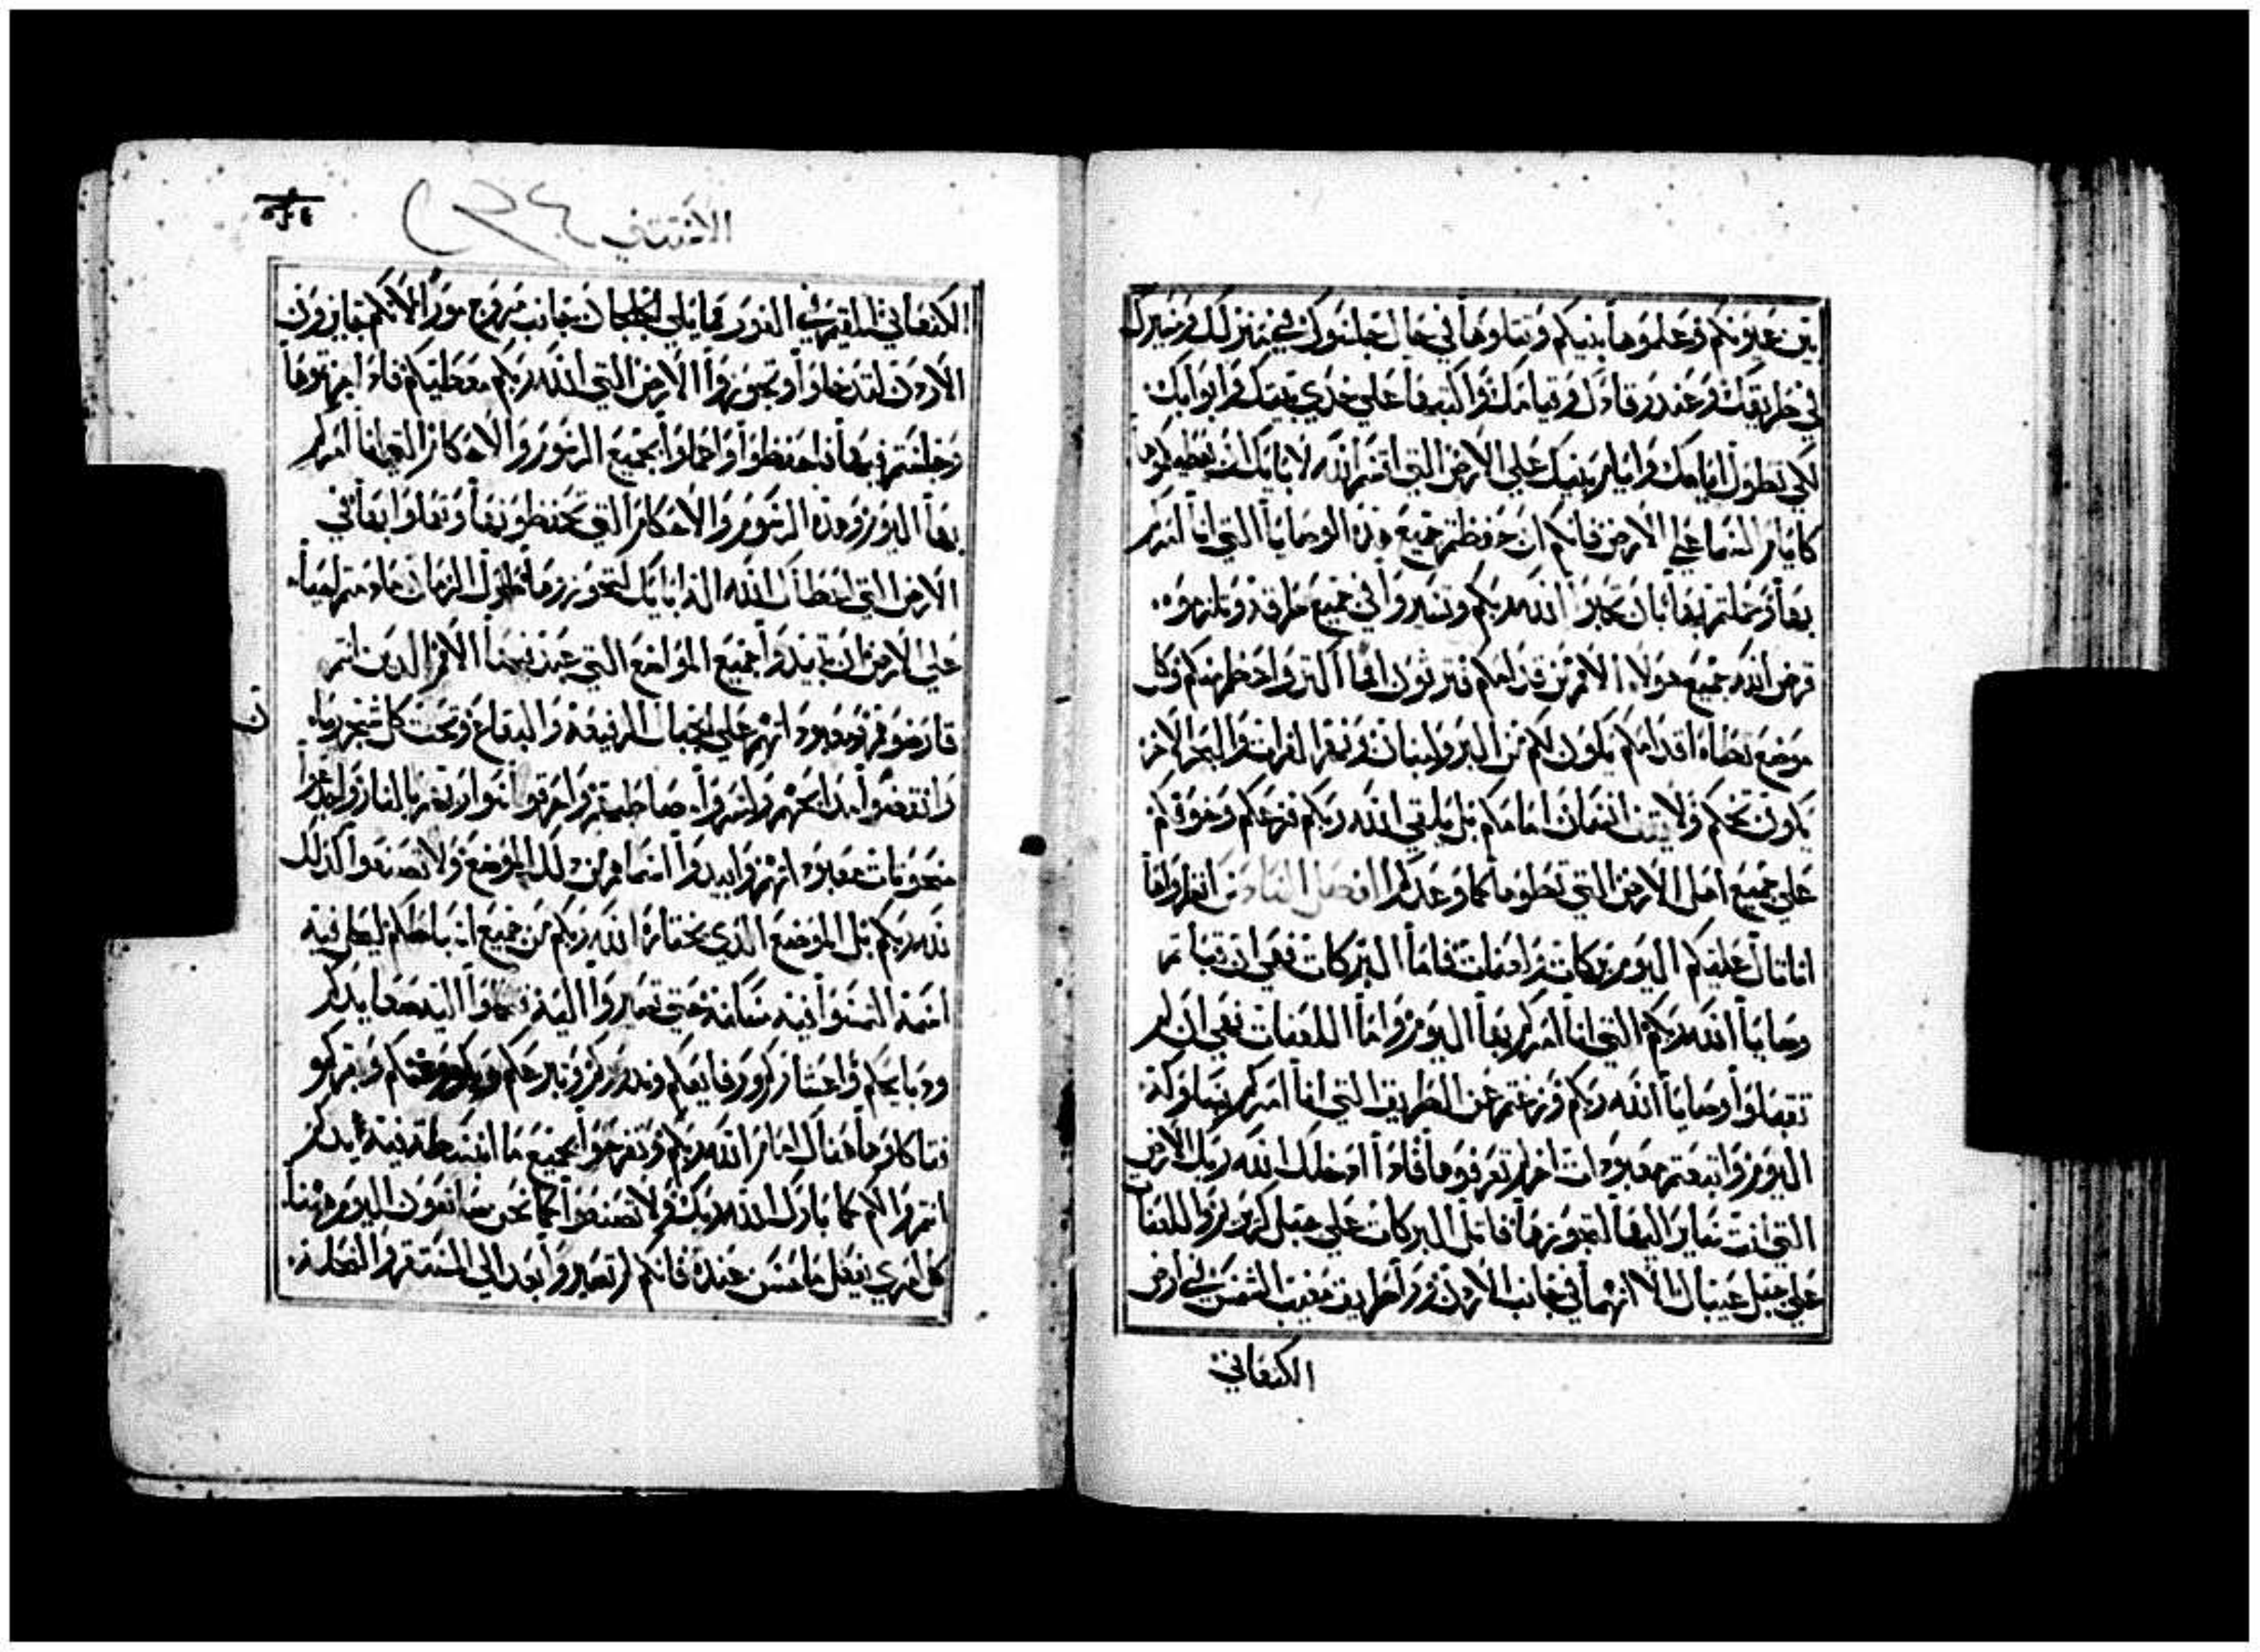 بين عيونكم وعلموها بنيكم وتتلوها في حال جلسوك في منزلك ومسيرك
في طريقك وعند رقادك وقيامك واكتبها على خدي بيتك وابوابك
لكي تطول ايامك وايام بنيك على الارض التي اقسم الله لابايك ان يعطيكموها
كايام السما على الارض فانكم ان حفظتم جميع هذه الوصايا التي انا امركم
بها وعملتم بها بان تحبوا الله ربكم وتسيروا في جميع طرقه وتلزموه
قرض الله جميع هولاء الامم من قدامكم فترثون امما اكثر واعظم منكم وكل
موضع تطاه اقدامكم يكون لكم من البر ولبنان ونهر الفرات والبحر الاخر
يكون تخمكم ولا يثبت انسان امامكم بل يلقي الله ربكم فزعكم وخوفكم
على جميع اهل الارض التي تطوها كما وعدكم انظروا ها
انا تال عليكم اليوم بركات ولعنات فاما البركات فهي ان قبلتم
وصايا الله ربكم التي انا امركم بها اليوم واما اللعنات فهي ان لم
تقبلوا وصايا الله ربكم وزغتم عن الطريق التي انا امركم بسلوكه
اليوم واتبعتم معبودات اخر لم تعرفوها فاذا ادخلك الله ربك الارض
التي انت صاير اليها لتحوزها فاتل البركات على جبل كريزيم واللعنات
على جبل عيبال الا انهما في جانب الاردن ورا طريق مغيب الشمس في ارض
الكنعاني
الكنعاني المقيم في الغور مما يلي الجلجال جانب مروج مورا لانكم جايزون
الاردن لتدخلوا وتحوزوا الارض التي الله ربكم معطيكم فاذا حزتموها
وجلستم فيها فاحفظوا واعملوا بجميع الرسوم والاحكام التي انا امركم
بها اليوم وهذه الرسوم والاحكام التي تحفظونها وتعلوا بها في
الارض التي اعطاك الله اله ابايك لتحوزها طول الزمان مادمتم احياء
على الارض ان تبيدوا جميع المواضع التي عبد فيها الامم الذين انتم
قارضوهم معبوداتهم على الجبال الرفيعة والبقاع وتحت كل شجر رواه
وانقضوا مذابحهم واكسروا مصاطبهم واحرقوا سواريهم بالنار واجدعوا
منحوتات معبوداتهم وابيدوا اسماهم من ذلك الموضع ولا تصنعوا كذلك
لله ربكم بل الموضع الذي يختاره الله ربكم من جميع اسباطكم ليحل فيه
اسمه التمسوا فيه سكانه حتى تصيروا اليه تحملوا اليه صعايدكم
وذبايحكم واعشاركم ورفايعكم ونذوركم وتبرعكم وبكور غنمكم وبقركم
فتاكلوها هناك امام الله ربكم وتفرحوا بجميع ما انبسطت فيه ايديكم
انتم والكم كما بارك الله ربك ولا تصنعوا كما نحن صانعون اليوم ههنا
كل امرئ يفعل ما حسن عنده فانكم لم تصيروا بعد الى المستقر والنحلة